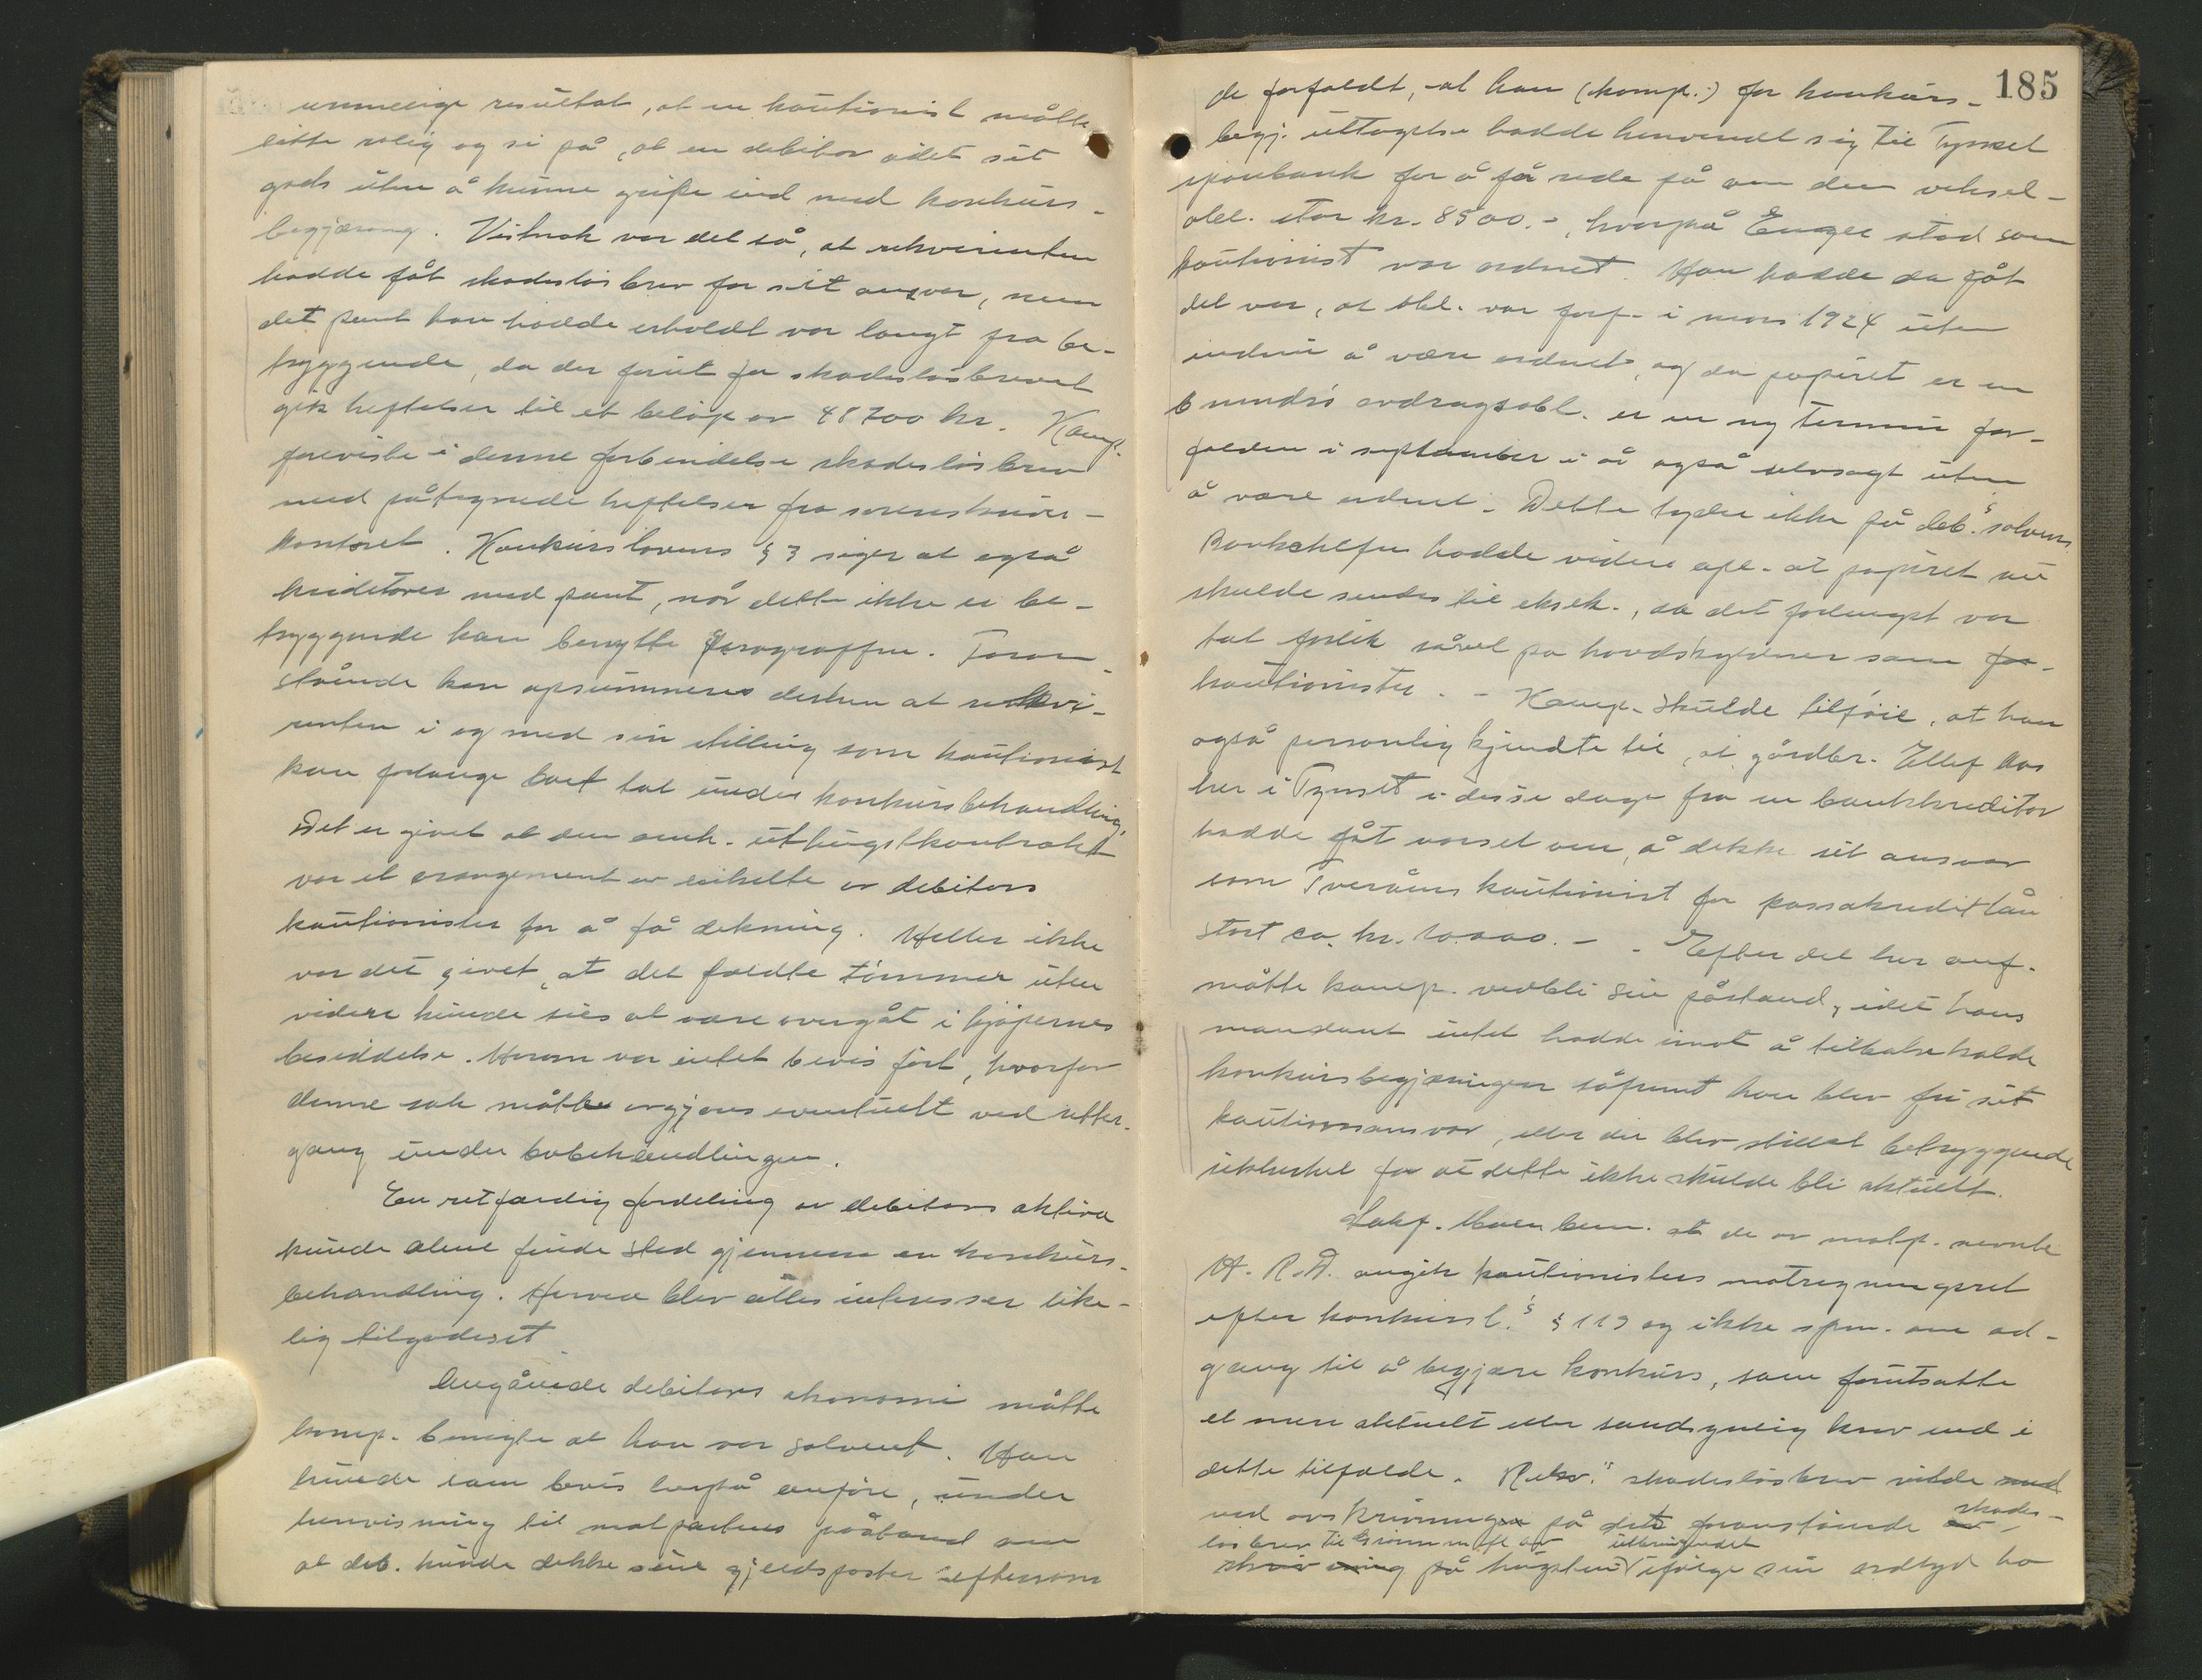 urimelige resultat, at en kautionist måtte
sitte rolig og se på, at en debitor ødet sit
gods uten å kunne gripe ind med konkurs-
begjæring. Vistnok var det så, at rekvirenten
hadde fåt skadesløsbrev for sit ansvar, men
det pant han hadde erholdt var langt fra be-
tryggende, da der forut for skadesløsbrevet
gik heftelser til et beløp av 48700 kr. Komp.
foreviste i denne forbindelse skadesløsbrev
med påtegnede heftelser fra sorenskriver-
kontoret. Konkurslovens § 3 siger at også
kreditorer med pant, når dette ikke er be-
tryggende kan benytte paragraffen. Foran-
stående kan opsummeres derhen at rekvi-
renten i og med sin stilling som kautionist
kan forlange boet tat under konkursbehandling.
Det er givet at den omh. uthugstkontrakt
var et arrangement av enkelte av debitors
kautionister for å få dekning. Heller ikke
var det givet, at det fældte tømmer uten
videre kunde sies at være overgåt i kjøpernes
besiddelse. Herom var intet bevis ført, hvorfor
denne sak måtte avgjøres eventuelt ved retter-
gang under bobehandlingen.
En retfærdig fordeling av debitors aktiva
kunde alene finde sted gjennem en konkurs-
behandling. Herved blev alles interesser like-
lig tilgodeset.
Angående debitors økonomi måtte
komp. benegte at han var solvent. Han
kunde som bevis herpå anføre, under
henvisning til motpartens påstand om
at deb. kunde dekke sine gjeldsposter eftersom
185
de forfaldt, at han (komp.) før konkurs-
begj. uttagelse hadde henvendt sig til Tynset
sparebank for å få rede på om den veksel-
obl. stor kr. 8500.-, hvorpå Enger stod som
kautionist var ordnet. Han hadde da fåt
det svar, at obl. var forf. i mars 1924 uten
endnu å være ordnet, og da papiret er en
6 mndrs avdragsobl. er en ny termin for-
falden i september i år også selvsagt uten
å være ordnet. Dette tyder ikke på deb.s solvens.
Bankchefen hadde videre opl. at papiret nu
skulde sendes til eksek., da det forlengst var
tat forlik såvel på hovedskyldner som
kautionister. - Komp. skulde tilføie, at han
også personlig kjendte til, at gårdbr. Ellef Aas
her i Tynset i disse dage fra en bankkreditor
hadde fåt varsel om, å dekke sit ansvar
som Tveråens kautionist for kassakreditlån
stort ca. kr. 10.000.- - Efter det her anf.
måtte komp. vedbli sin påstand, idet hans
mandant intet hadde imot å tilbakekalde
konkursbegjæringen såfremt han blev fri sit
kautionsansvar, eller der blev stillet betryggende
sikkerhet for at dette ikke skulde bli aktuelt.
Sakf. Moen bem. at de av motp. nevnte
H. R. D. angik kautionisters motregningsret
efter konkursl.s § 119 og ikke spm. om ad-
gang til å begjære konkurs, som forutsatte
et mere aktuelt eller sandsynlig krav end i
dette tilfælde. Rekv.s skadesløsbrev vilde med
ved avskrivningen på det foranstående skades-
løsbrev til utbringendet
skrivning på hugsten ifølge sin ordlyd ha